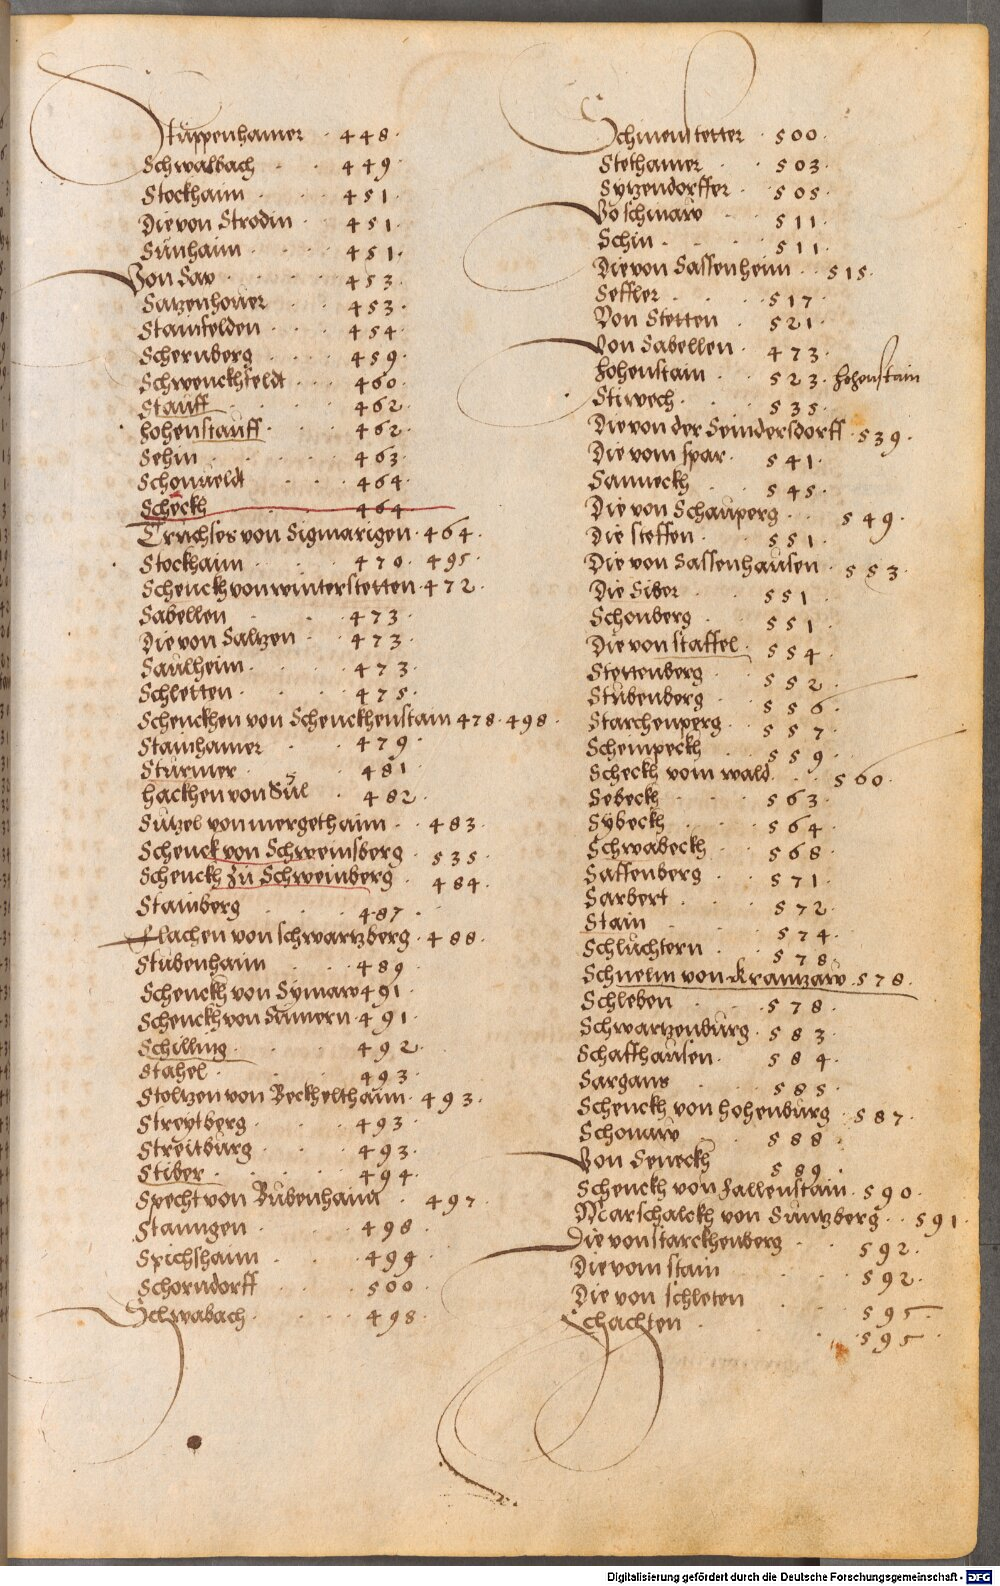 Stüppenhamer · 448 ·
Schwalbach · · 449 ·
Stockhaim · · 451 ·
Die von Strodin · 451 ·
Sünhaim · · 451 ·
Von Saw · · 453 ·
Satzenhover · 453 ·
Stainfelden · · 454 ·
Schernberg · · 459 ·
Schwenckhfeldt · · 460 ·
Stauff · · 462 ·
hohenstauff · · 462 ·
Sehin · · 463 ·
Schonveldt · · 464 ·
Scheckh · 464
Truchses von Sigmaringen · 464 ·
Stockhaim · · 470 · 495 ·
Schenckh von winterstetten · 472 ·
Sabellen · · 473 ·
Die von Saltzen · 473 ·
Saulheim · · 473 ·
Schletten · · 475 ·
Schenckhen von Schenckhenstain 478 · 498 ·
Stainhamer · · 479 ·
Sturmer · · 481 ·
hackhen von Sül · 482 ·
Sützel von mergethaim · · 483 ·
Schenck von Schweinsberg · 535 ·
Schenckh zu Schweinberg · 484 ·
Stainberg · 487 ·
Flachen von schwartzberg · 488 ·
Stübenhaim · · 489 ·
Schenckh von Symaw 491 ·
Schenckh von Sümern · 491 ·
Schilling · · 492 ·
Stahel · · 493 ·
Stoltzen von Beckhelthaim · 493 ·
Streytberg · · 493 ·
Streitburg · · 493 ·
Stiber · · 494 ·
Specht von Bübenhaim · 497 ·
Staingen · · 498 ·
Spichshaim · · 499 ·
Schorndorff · · 500 ·
Schwabach · · 498 ·
Schmenstetter · 500 ·
Stethamer · · 503 ·
Sytzendorffer · 505 ·
Vo schmaw · · 511 ·
Schin · · 511 ·
Die von Sassenheim · · 515 ·
Seffler · · 517 ·
Von Stetten · 521 ·
Von Sabellen · 473 ·
hohenstain · 523 · hohenstain
Stiwech · · 535 ·
Die von der Seindersdorff · 539 ·
Die vom spar · 541 ·
Sanneckh · 545 ·
Die von Schauperg · · 549 ·
Die steffen · · 551 ·
Die von Sassenhausen · 553 ·
Die Siber · · 551 ·
Schonberg · · 551 ·
Die von staffel · 554 ·
Stettenberg · · 552 ·
Stubenberg · · 556 ·
Starchenperg · · 557 ·
Schempeckh · 559 ·
Scheckh vom wald · · 560 ·
Sebeckh · · 563 ·
Sybeckh · · 564 ·
Schwabeckh · · 568 ·
Saffenberg · · 571 ·
Sarbert · · 572 ·
Stain · · 574 ·
Schluchtern · · 578 ·
Schnelm von Krantzaw · 578 ·
Schleben · · 578 ·
Schwartzenburg · 583 ·
Schaffhausen · · 584 ·
Sargans · · 585 ·
Schenckh von hohenburg · 587 ·
Schonaw · · 588 ·
Von Seneckh · 589 ·
Schenckh von Zallenstain · 590 ·
Marschalckh von Suntzberg · · 591 ·
Die von starckhenberg · · 592 ·
Die vom stain · · 592 ·
Die von schleten · · 595 ·
Schachten · · 595 ·
Digitalisierung gefördert durch die Deutsche Forschungsgemeinschaft - DFG